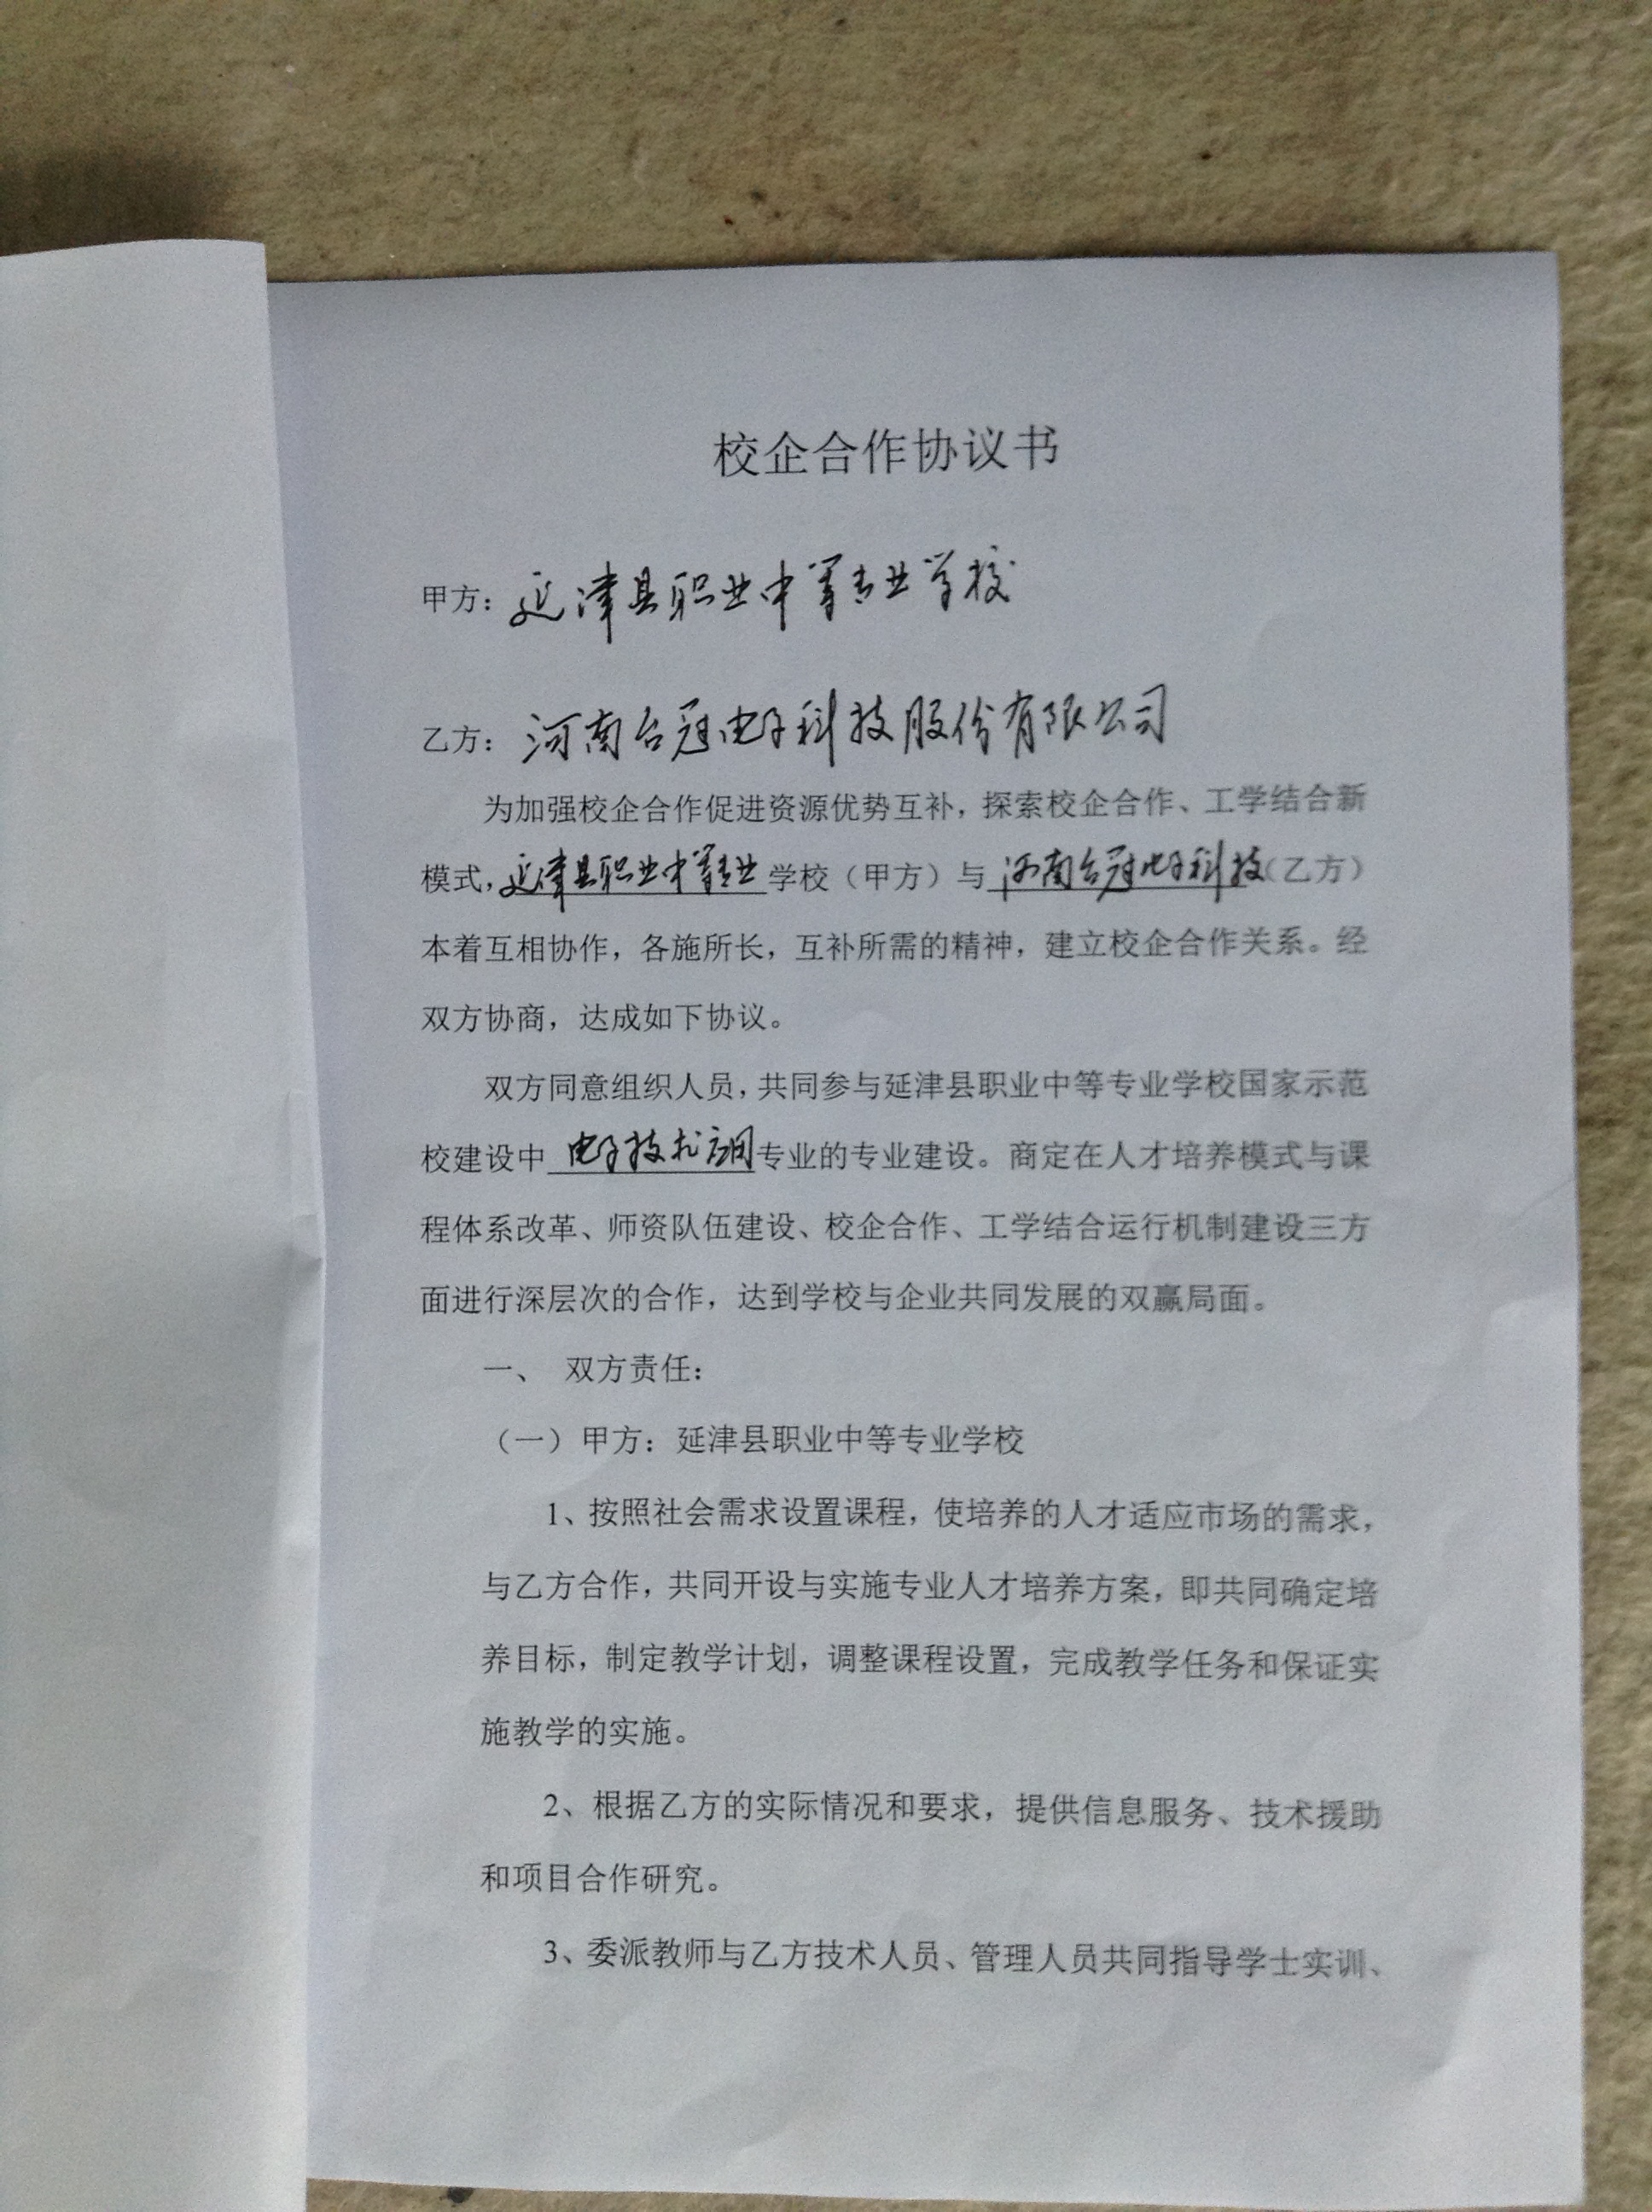 校企合作协议书
甲方：延津县职业中等专业学校
乙方：河南台冠电子科技股份有限公司
为加强校企合作促进资源优势互补，探索校企合作、工学结合新
模式，延津县职业中等专业学校（甲方）与河南台冠电子科技（乙方）
本着互相协作，各施所长，互补所需的精神，建立校企合作关系。经
双方协商，达成如下协议。
双方同意组织人员，共同参与延津县职业中等专业学校国家示范
校建设中电子技术应用专业的专业建设。商定在人才培养模式与课
程体系改革、师资队伍建设、校企合作、工学结合运行机制建设三方
面进行深层次的合作，达到学校与企业共同发展的双赢局面。
一、 双方责任：
（一）甲方：延津县职业中等专业学校
1、按照社会需求设置课程，使培养的人才适应市场的需求，
与乙方合作，共同开设与实施专业人才培养方案，即共同确定培
养目标，制定教学计划，调整课程设置，完成教学任务和保证实
施教学的实施。
2、根据乙方的实际情况和要求，提供信息服务、技术援助
和项目合作研究。
3、委派教师与乙方技术人员、管理人员共同指导学士实训、